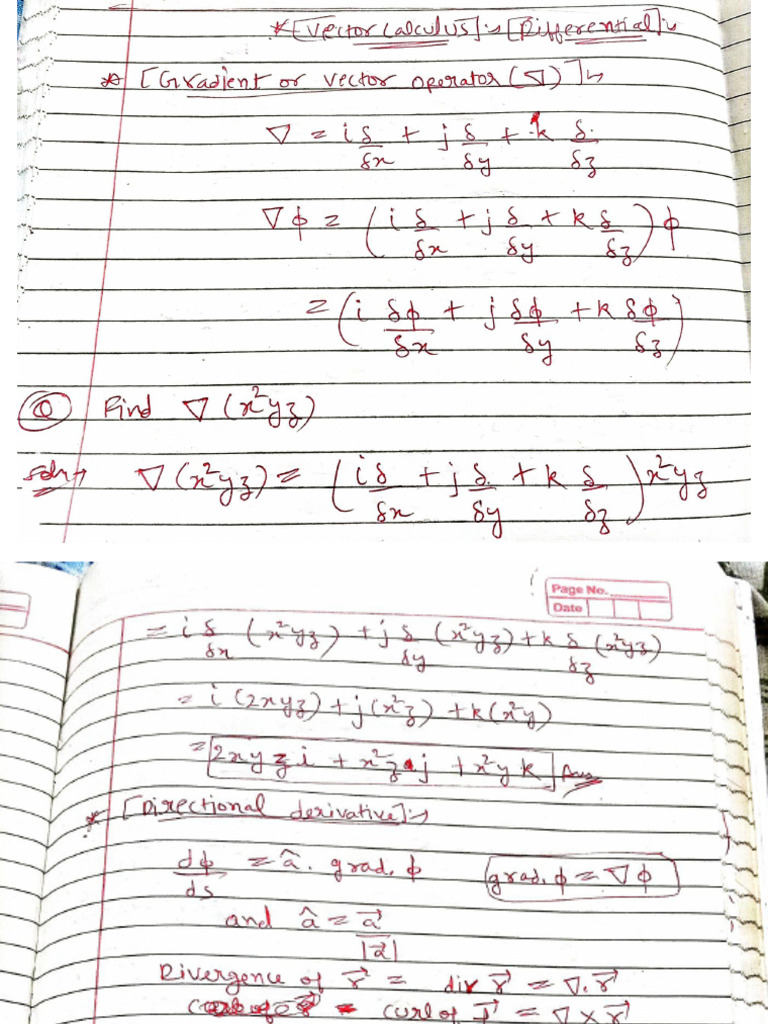 * [Vector Calculus]:- [Differential]:-
* [Gradient or vector operator (∇)]:-
∇ = i δ/δx + j δ/δy + k δ/δz
∇ϕ = (i δ/δx + j δ/δy + k δ/δz) ϕ
= (i δϕ/δx + j δϕ/δy + k δϕ/δz)
Q Find ∇(x²yz)
Soln→ ∇(x²yz) = (i δ/δx + j δ/δy + k δ/δz) x²yz
Page No.
Date
= i δ/δx (x²yz) + j δ/δy (x²yz) + k δ/δz (x²yz)
= i (2xyz) + j (x²z) + k (x²y)
= 2xyz i + x²z j + x²y k Ans
* [Directional derivative]:-
dϕ/ds = â . grad. ϕ (grad. ϕ = ∇ϕ)
and â = a⃗/|a⃗|
Divergence of r⃗ = div r⃗ = ∇. r⃗
= curl of r⃗ = ∇ × r⃗